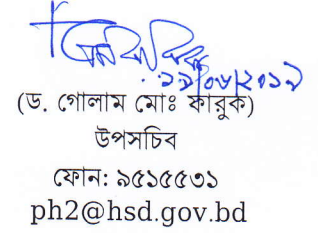 (ড. গোলাম মোঃ ফারুক)
উপসচিব
ফোন: ৯৫১৫৫৩১
ph2@hsd.gov.bd